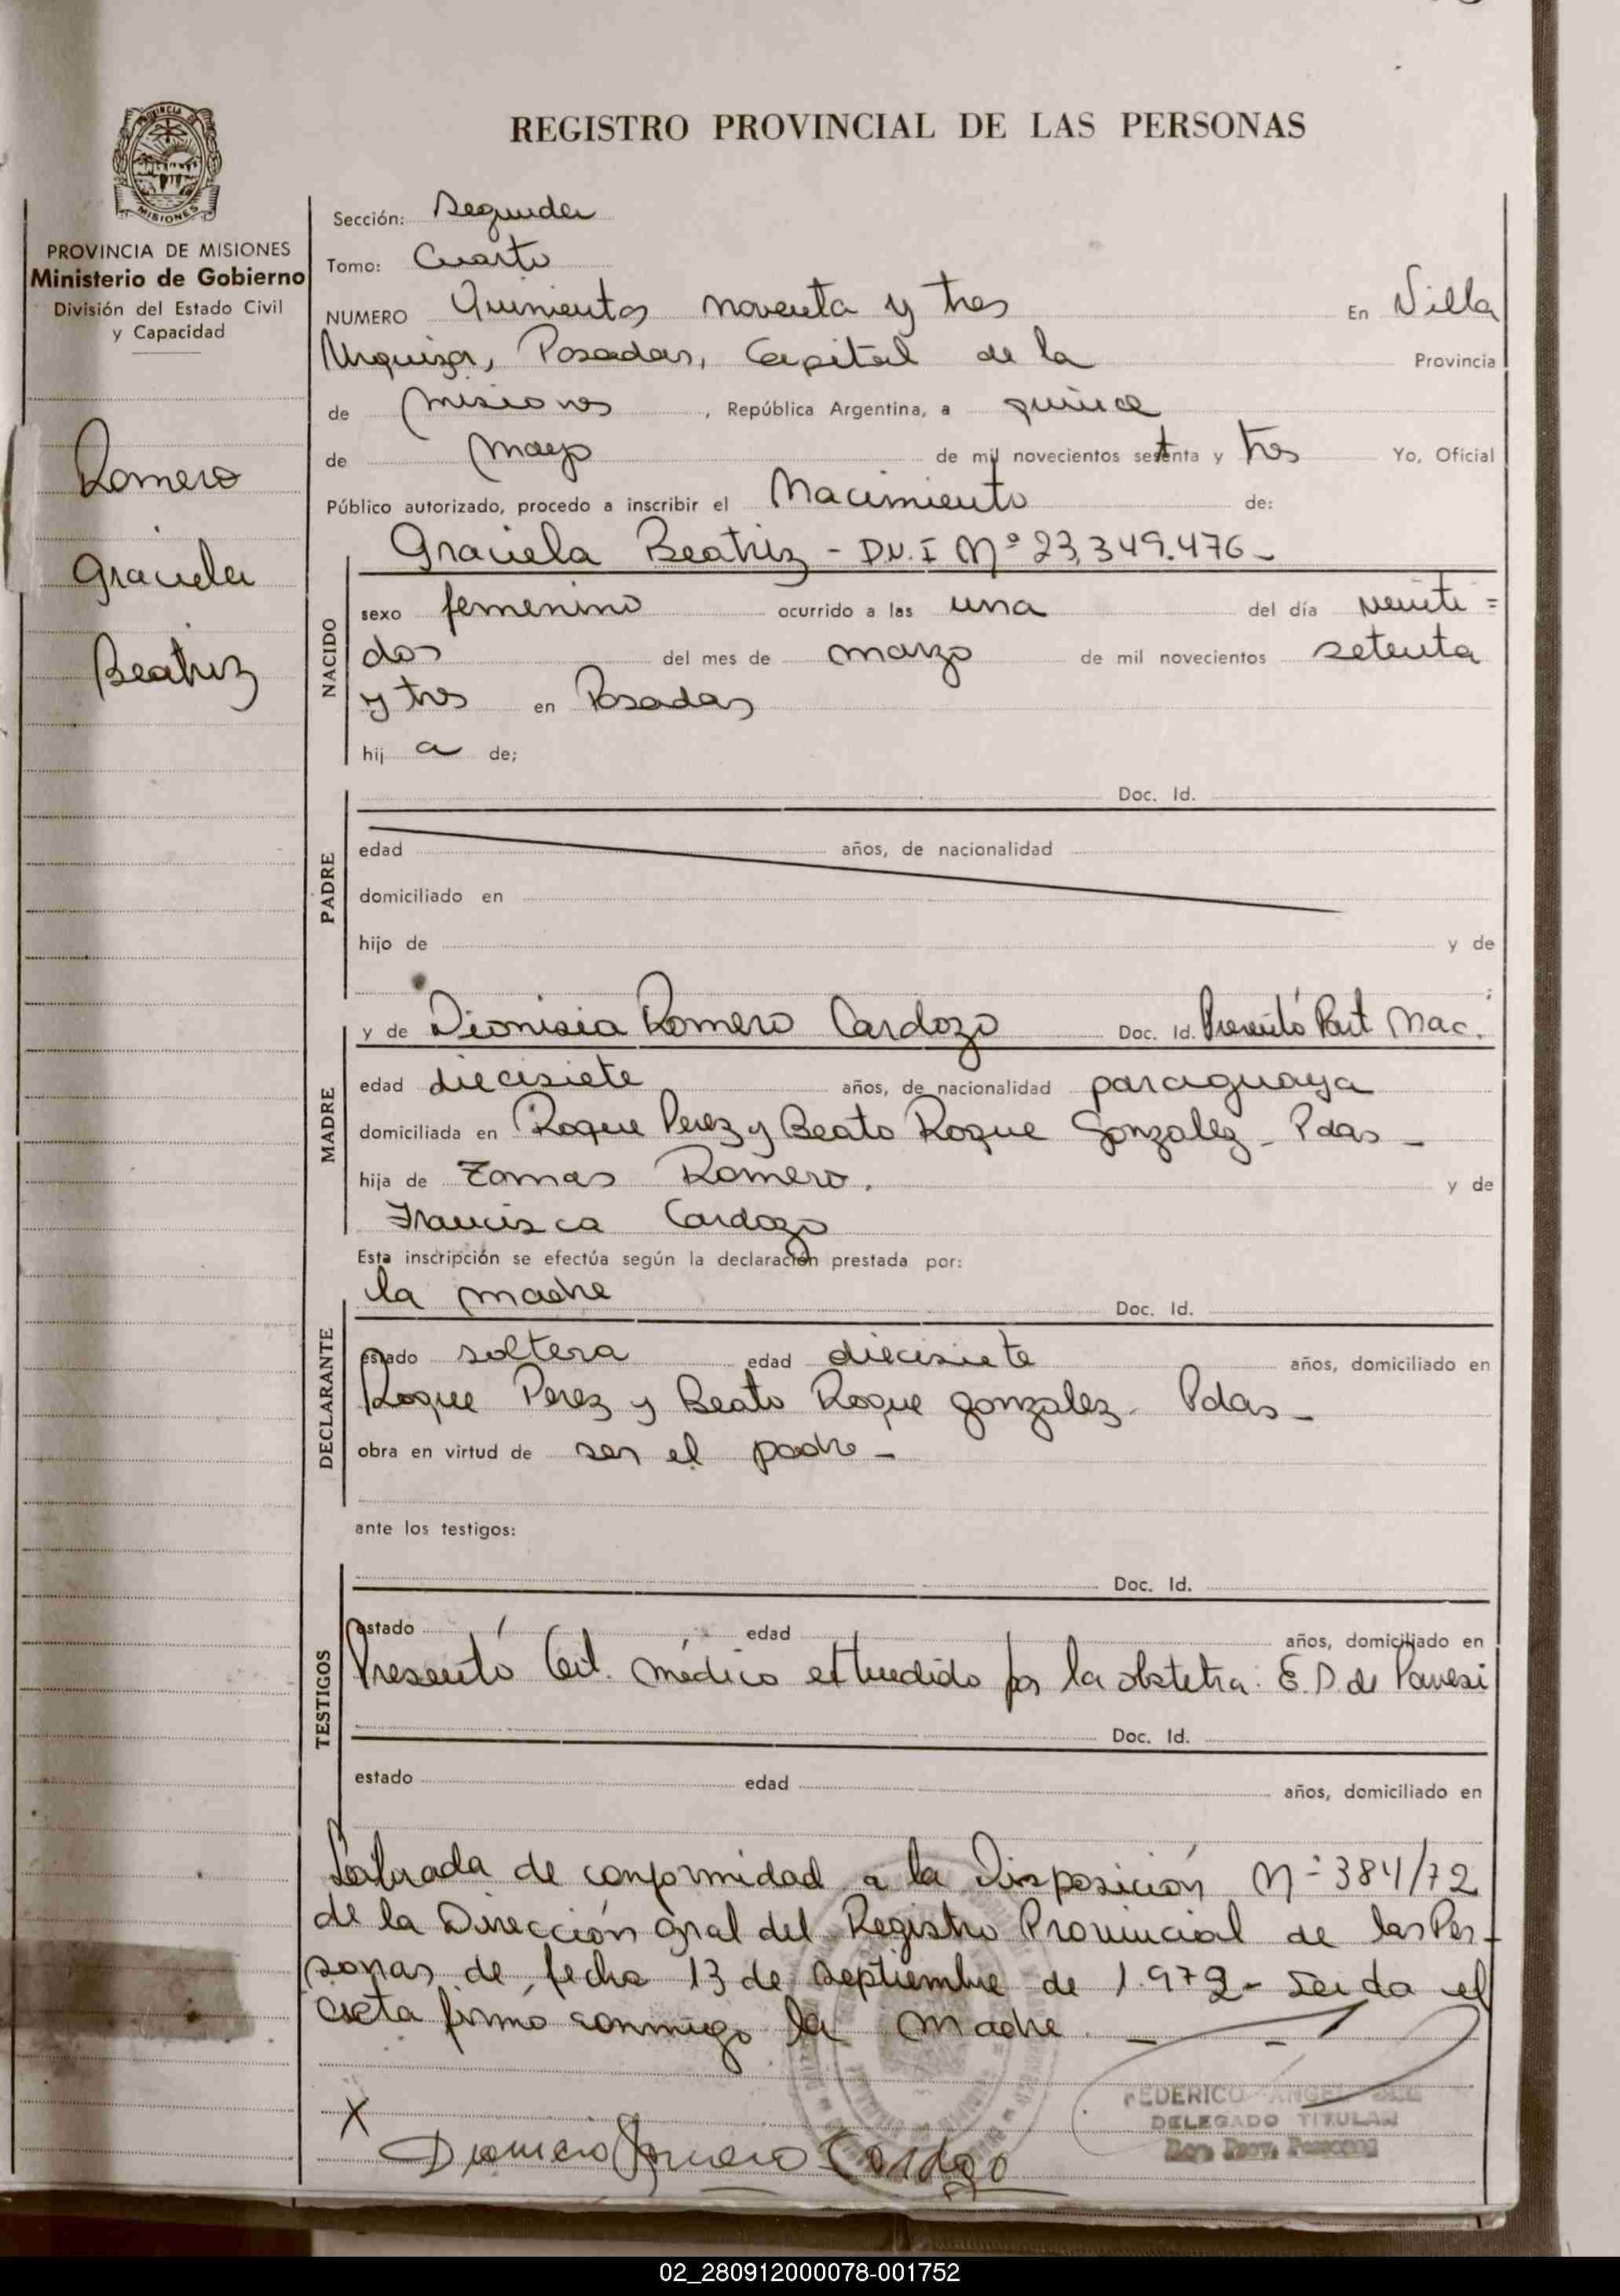 REGISTRO PROVINCIAL DE LAS PERSONAS
PROVINCIA DE MISIONES
Ministerio de Gobierno
División del Estado Civil
y Capacidad
Romero
Graciela
Beatriz
Sección: Segunda
Tomo: Cuarto
NUMERO Quinientos noventa y tres En Villa
Urquiza, Posadas, Capital de la Provincia
de Misiones, República Argentina, a quince
de Mayo de mil novecientos setenta y tres Yo, Oficial
Público autorizado, procedo a inscribir el Nacimiento de:
Graciela Beatriz - D.N.I Nº 23,349.476-
NACIDO
sexo femenino ocurrido a las una del día veinti=
dos del mes de marzo de mil novecientos setenta
y tres en Posadas
hij a de;
PADRE
Doc. Id.
edad años, de nacionalidad
domiciliado en
hijo de y de
;
MADRE
y de Dionisia Romero Cardozo Doc. Id. Presentó Part Nac.
edad diecisiete años, de nacionalidad paraguaya
domiciliada en Roque Perez y Beato Roque Gonzalez - Pdas -
hija de Tomas Romero. y de
Francisca Cardozo
Esta inscripción se efectúa según la declaración prestada por:
DECLARANTE
la madre Doc. Id.
estado soltera edad diecisiete años, domiciliado en
Roque Perez y Beato Roque gonzalez - Pdas -
obra en virtud de ser el padre -
ante los testigos:
TESTIGOS
Doc. Id.
estado edad años, domiciliado en
Presentó Cert. médico extendido por la obstetra. E. D. de
Doc. Id.
estado edad años, domiciliado en
Labrada de conformidad a la Disposición Nº 384/72
de la Dirección Gral del Registro Provincial de las Per-
sonas de fecha 13 de Septiembre de 1.972 - Leida el
acta firmó conmigo la Madre. - -
FEDERICO ANGEL
DELEGADO TITULAR
Reg. Prov. Personas
X
Dionicia Romero Cardozo
02_280912000078-001752